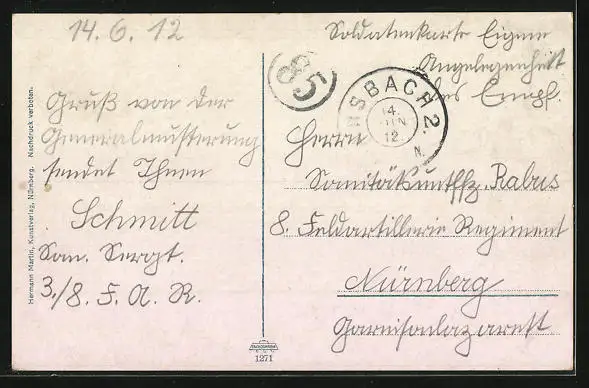 14.6.12
Gruß von der
Generalmusterung
sendet Ihnen
Schmitt
San. Sergt.
3./8. F. A. R.
Soldatenkarte Eigene
Angelegenheit
des Empf.
85
ANSBACH 2.
14.
JUN
12.
N.
Herrn
Sanitätsuntffz. Rabus
8. Feldartillerie Regiment
Nürnberg
Garnisonlazarett
Hermann Martin, Kunstverlag, Nürnberg. Nachdruck verboten.
1271